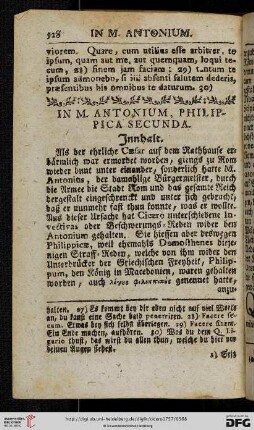 528 IN M. ANTONIUM.
viorem. Quare, cum utilius esse arbitrer, te
ipsum, quam aut me, aut quemquam, loqui te-
cum, 28) finem jam faciam: 29) tantum te
ipsum admonebo, si illi absenti salutem dederis,
praesentibus his omnibus te daturum. 30)
IN M. ANTONIUM, PHILIP-
PICA SECUNDA.
Innhalt.
Als der ehrliche Cæsar auf dem Rathhause er-
bärmlich war ermordet worden, giengs zu Rom
wieder bunt unter einander, sonderlich hatte M.
Antonius, der damahlige Bürgermeister, durch
die Armee die Stadt Rom und das gesamte Reich
dergestalt eingeschrenckt und unter sich gebracht,
daß er nunmehr fast thun konnte, was er wollte.
Aus dieser Ursache hat Cicero unterschiedene In-
vectivas oder Beschwerungs-Reden wider den
Antonium gehalten. Sie hiessen aber deswegen
Philippicæ, weil ehemahls Damosthenes diejes-
nigen Straff-Reden, welche von ihm wider den
Unterdrücker der Griechischen Freyheit, Philip-
pum, den König in Macedonien, waren gehalten
worden, auch λόγους φιλιππικοὺς genennet hatte,
anzu-
halten. 27) Es kommt bey dir alten nicht auf viel Worte
an, du kanst eine Sache bald penetriren. 28) Facere se-
cum. Etwas bey sich selbst überlegen. 29) Facere finem.
Ein Ende machen, aufhören. 30) Was du dem Q. Li-
gario thust, das wirst du allen thun, welche du hier vor
deinen Augen siehest.